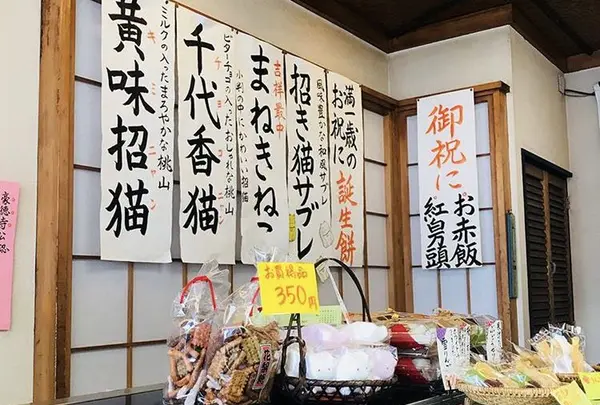 御祝に
お赤飯
紅白万頭
満一歳の
お祝に
誕生餅
風味豊かな和風サブレ
招き猫サブレ
小判の中にかわいい招猫
吉祥最中
まねきねっ
ビターチョコの入ったおしゃれな桃山
千代香猫
ミルクの入ったまろやかな桃山
黄味招猫
キミニャン
豪徳寺公認
350円